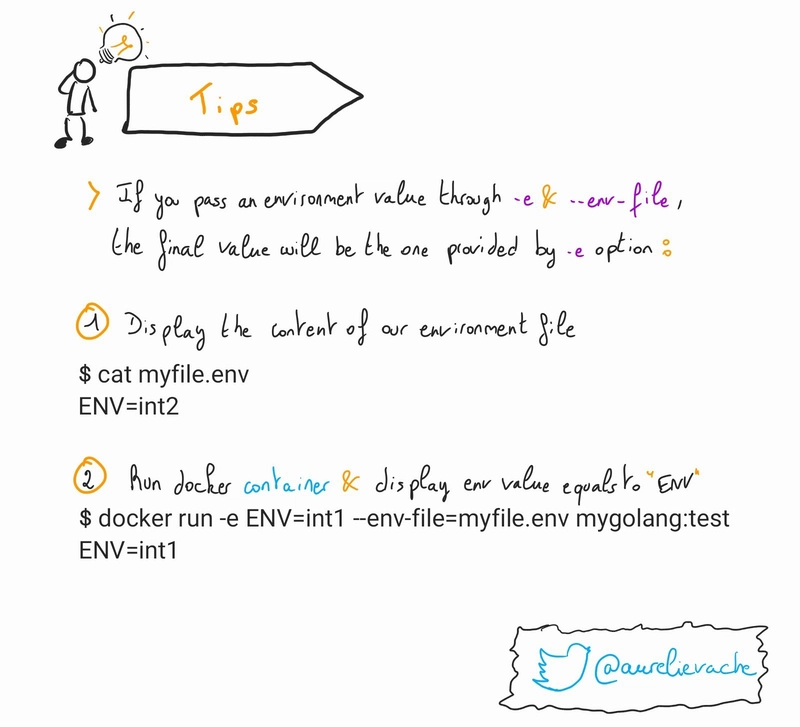 Tips
> If you pass an environment value through -e & --env-file,
the final value will be the one provided by -e option :
1 Display the content of our environment file
$ cat myfile.env
ENV=int2
2 Run docker container & display env value equals to "ENV"
$ docker run -e ENV=int1 --env-file=myfile.env mygolang:test
ENV=int1
@aurelievache